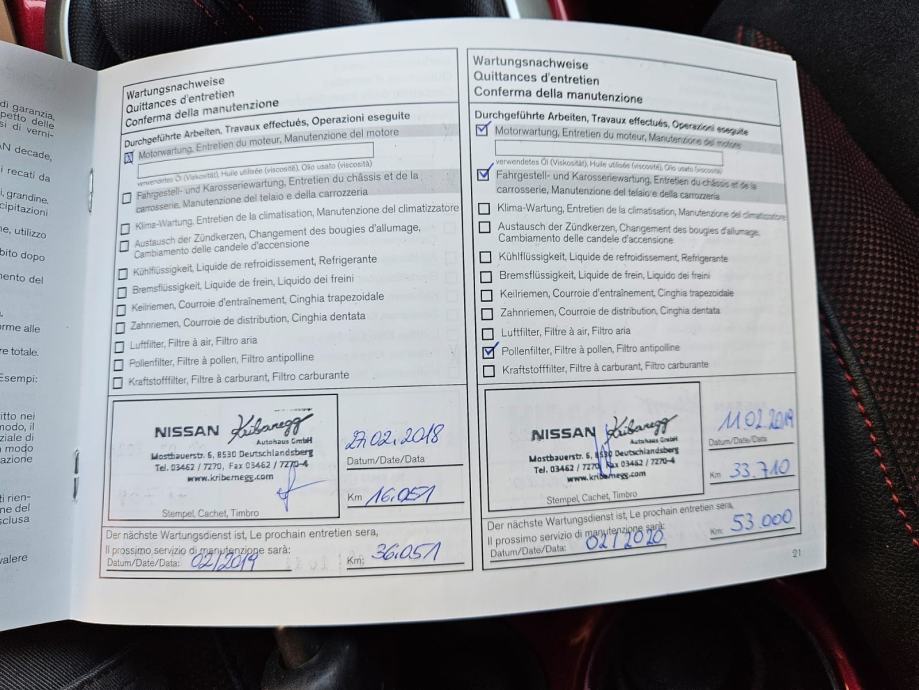 di garanzia,
petto delle
si di verni-
AN decade,
recati da
i, grandine,
cipitazioni
ne, utilizzo
bito dopo
mento del
orme alle
re totale.
Esempi:
itto nei
modo, il
ziale di
n modo
azione
ti rien-
ne del
sclusa
valere
Wartungsnachweise
Quittances d'entretien
Conferma della manutenzione
Durchgeführte Arbeiten, Travaux effectués, Operazioni eseguite
Motorwartung, Entretien du moteur, Manutenzione del motore
verwendetes Öl (Viskosität), Huile utilisée (viscosité), Olio usato (viscosità)
Fahrgestell- und Karosseriewartung, Entretien du châssis et de la
carrosserie, Manutenzione del telaio e della carrozzeria
Klima-Wartung, Entretien de la climatisation, Manutenzione del climatizzatore
Austausch der Zündkerzen, Changement des bougies d'allumage,
Cambiamento delle candele d'accensione
Kühlflüssigkeit, Liquide de refroidissement, Refrigerante
Bremsflüssigkeit, Liquide de frein, Liquido dei freini
Keilriemen, Courroie d'entraînement, Cinghia trapezoidale
Zahnriemen, Courroie de distribution, Cinghia dentata
Luftfilter, Filtre à air, Filtro aria
Pollenfilter, Filtre à pollen, Filtro antipolline
Kraftstofffilter, Filtre à carburant, Filtro carburante
NISSAN Kribernegg
Autohaus GmbH
Mostbauerstr. 6, 8530 Deutschlandsberg
Tel. 03462 / 7270, Fax 03462 / 7270-4
www.kribernegg.com
Stempel, Cachet, Timbro
27.02.2018
Datum/Date/Data
Km 16.051
Der nächste Wartungsdienst ist, Le prochain entretien sera,
Il prossimo servizio di manutenzione sarà:
Datum/Date/Data: 02/2019
Km: 36.051
Wartungsnachweise
Quittances d'entretien
Conferma della manutenzione
Durchgeführte Arbeiten, Travaux effectués, Operazioni eseguite
Motorwartung, Entretien du moteur, Manutenzione del motore
verwendetes Öl (Viskosität), Huile utilisée (viscosité), Olio usato (viscosità)
Fahrgestell- und Karosseriewartung, Entretien du châssis et de la
carrosserie, Manutenzione del telaio e della carrozzeria
Klima-Wartung, Entretien de la climatisation, Manutenzione del climatizzatore
Austausch der Zündkerzen, Changement des bougies d'allumage,
Cambiamento delle candele d'accensione
Kühlflüssigkeit, Liquide de refroidissement, Refrigerante
Bremsflüssigkeit, Liquide de frein, Liquido dei freini
Keilriemen, Courroie d'entraînement, Cinghia trapezoidale
Zahnriemen, Courroie de distribution, Cinghia dentata
Luftfilter, Filtre à air, Filtro aria
Pollenfilter, Filtre à pollen, Filtro antipolline
Kraftstofffilter, Filtre à carburant, Filtro carburante
NISSAN Kribernegg
Autohaus GmbH
Mostbauerstr. 6, 8530 Deutschlandsberg
Tel. 03462 / 7270, Fax 03462 / 7270-4
www.kribernegg.com
Stempel, Cachet, Timbro
11.02.2019
Datum/Date/Data
Km 33.710
Der nächste Wartungsdienst ist, Le prochain entretien sera,
Il prossimo servizio di manutenzione sarà:
Datum/Date/Data: 02/2020
Km: 53.000
21